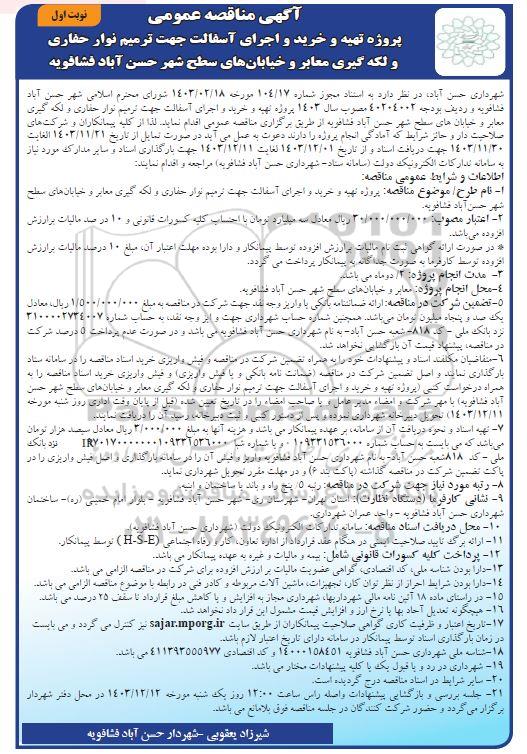 آگهی مناقصه عمومی
نوبت اول
پروژه تهیه و خرید و اجرای آسفالت جهت ترمیم نوار حفاری
و لکه گیری معابر و خیابان‌های سطح شهر حسن آباد فشافویه
شهرداری حسن آباد، در نظر دارد به استناد مجوز شماره ۱۰۴/۱۷ مورخه ۱۴۰۳/۰۲/۱۸ شورای محترم اسلامی شهر حسن آباد
فشافویه و ردیف بودجه ۴۰۲۰۴۰۰۲ مصوب سال ۱۴۰۳ پروژه تهیه و خرید و اجرای آسفالت جهت ترمیم نوار حفاری و لکه گیری
معابر و خیابان های سطح شهر حسن آباد فشافویه از طریق برگزاری مناقصه عمومی اقدام نماید. لذا از کلیه پیمانکاران و شرکت‌های
صلاحیت دار و حائز شرایط که آمادگی انجام پروژه را دارند دعوت به عمل می آید در صورت تمایل از تاریخ ۱۴۰۳/۱۱/۲۱ لغایت
۱۴۰۳/۱۱/۳۰ جهت دریافت اسناد و از تاریخ ۱۴۰۳/۱۲/۰۱ لغایت ۱۴۰۳/۱۲/۱۱ جهت بارگذاری اسناد و سایر مدارک مورد نیاز
به سامانه تدارکات الکترونیک دولت (سامانه ستاد- شهرداری حسن آباد فشافویه) مراجعه و اقدام نمایند:
اطلاعات و شرایط عمومی مناقصه:
۱- نام طرح/ موضوع مناقصه: پروژه تهیه و خرید و اجرای آسفالت جهت ترمیم نوار حفاری و لکه گیری معابر و خیابان‌های سطح
شهر حسن‌آباد فشافویه.
۲- اعتبار مصوب: ۳۰/۰۰۰/۰۰۰/۰۰۰ ریال معادل سه میلیارد تومان با احتساب کلیه کسورات قانونی و ۱۰ در صد مالیات برارزش
افزوده می‌باشد.
* در صورت ارائه گواهی ثبت نام مالیات برارزش افزوده توسط پیمانکار و دارا بوده مهلت اعتبار آن، مبلغ ۱۰ درصد مالیات برارزش
افزوده توسط کارفرما به صورت جداگانه به پیمانکار پرداخت می گردد.
۳- مدت انجام پروژه: ۲/ دوماه می باشد.
۴-محل انجام پروژه: معابر و خیابان‌های سطح شهر حسن آباد فشافویه.
۵-تضمین شرکت در مناقصه: ارائه ضمانتنامه بانکی یا واریز وجه نقد جهت شرکت در مناقصه به مبلغ ۱/۵۰۰/۰۰۰/۰۰۰ ریال، معادل
یک صد و پنجاه میلیون تومان می‌باشد. همچنین شماره حساب شهرداری جهت واریز وجه نقد، به حساب شماره ۳۱۰۰۰۰۲۷۳۴۰۰۷
نزد بانک ملی - کد ۸۱۸- شعبه حسن آباد- به نام شهرداری حسن آباد فشافویه می باشد و در صورت عدم پرداخت ۵ درصد شرکت
در مناقصه، پیشنهاد قیمت آن بازگشایی نخواهد شد.
۶-متقاضیان مکلفند اسناد و پیشنهادات خود را به همراه تضمین شرکت در مناقصه و فیش واریزی خرید اسناد مناقصه را در سامانه ستاد
بارگذاری نمایند و اصل تضمین شرکت در مناقصه (ضمانت نامه بانکی و یا فیش واریزی) و فیش واریزی خرید اسناد مناقصه را به
همراه درخواست کتبی (پروژه تهیه و خرید و اجرای آسفالت جهت ترمیم نوار حفاری و لکه گیری معابر و خیابان‌های سطح شهر حسن
آباد فشافویه) با مهر شرکت و امضاء مدیر عامل و یا صاحب امضاء را در تاریخ تعیین شده (قبل از پایان وقت اداری روز شنبه مورخه
۱۴۰۳/۱۲/۱۱) تحویل دبیرخانه شهرداری نموده و پس از دستور کتبی و ثبت دبیرخانه، رسید آن را دریافت نمایند.
۷- تهیه اسناد و نحوه دریافت آن از سامانه، بر عهده پیمانکار می باشد و هزینه آنها به مبلغ ۳/۰۰۰/۰۰۰ ریال معادل سیصد هزار تومان
می‌باشد که می بایست به حساب شماره ۰۱۰۹۳۳۱۵۳۶۰۰۰ و با شماره شبا نزد بانک
ملی - کد ۸۱۸شعبه حسن آباد- به نام شهرداری حسن آباد فشافویه واریز و فیش آن را در سامانه بارگذاری و اصل فیش واریزی را در
پاکت تضمین شرکت در مناقصه گذاشته (پاکت بند ۶) و در مهلت مقرر تحویل شهرداری نماید.
۸- رتبه مورد نیاز جهت شرکت در مناقصه: رتبه ۵/ پنج راه و باند یا ساختمان و ابنیه.
۹- نشانی کارفرما (دستگاه نظارت): استان تهران- شهرستان ری- شهر حسن آباد فشافویه - بلوار امام خمینی (ره)- ساختمان
شهرداری حسن آباد فشافویه - واحد عمران شهرداری.
۱۰- محل دریافت اسناد مناقصه: سامانه تدارکات الکترونیک دولت (شهرداری حسن آباد فشافویه).
۱۱- ارائه برگ تایید صلاحیت ایمنی در هنگام عقد قرارداد از اداره تعاون، کار و رفاه اجتماعی (H-S-E) توسط پیمانکار.
۱۲- پرداخت کلیه کسورات قانونی شامل: بیمه و مالیات و غیره به عهده پیمانکار می باشد.
۱۳-دارا بودن شناسه ملی، کد اقتصادی، گواهی عضویت مالیات بر ارزش افزوده برای شرکت در مناقصه الزامی می باشد.
۱۴-دارا بودن شرایط احراز از نظر توان کار، تجهیزات، ماشین آلات مربوطه و کادر فنی در رابطه با موضوع مناقصه الزامی می باشد.
۱۵- در راستای ماده ۱۸ آئین نامه مالی شهرداریها، شهرداری مجاز به افزایش و یا کاهش مبلغ قرارداد تا سقف ۲۵ درصد می باشد.
۱۶- هیچگونه تعدیل آحاد بها یا نرخ ارز و افزایش قیمت مشمول این قرار داد نخواهد شد.
۱۷-تاریخ اعتبار و ظرفیت کاری گواهی صلاحیت پیمانکاران از طریق سایت sajar.mporg.ir نیز کنترل می گردد و می بایست
در زمان بارگذاری اسناد توسط پیمانکار در سامانه دارای تاریخ اعتبار لازم باشد.
۱۸-شناسه ملی شهرداری حسن آباد فشافویه ۱۴۰۰۰۱۵۸۴۵۱ و کد اقتصادی ۴۱۱۳۹۳۵۵۵۹۷۷ می باشد.
۱۹- شهرداری در رد و یا قبول یک یا کلیه پیشنهادات مختار می باشد.
۲۰- سایر شرایط در اسناد مناقصه درج گردیده است.
۲۱- جلسه بررسی و بازگشایی پیشنهادات واصله راس ساعت ۱۲:۰۰ روز یک شنبه مورخه ۱۴۰۳/۱۲/۱۲ در محل دفتر شهردار
برگزار می‌گردد و حضور شرکت کنندگان در جلسه مناقصه فوق بلامانع می باشد.
شیرزاد یعقوبی -شهردار حسن آباد فشافویه